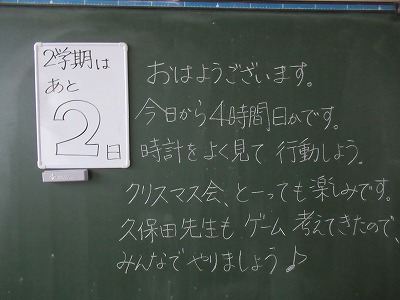 2学期は
あと
2
日
おはようございます。
今日から4時間日かです。
時計をよく見て 行動しよう。
クリスマス会、とーっても楽しみです。
久保田先生も ゲーム 考えてきたので、
みんなで やりましょう♪